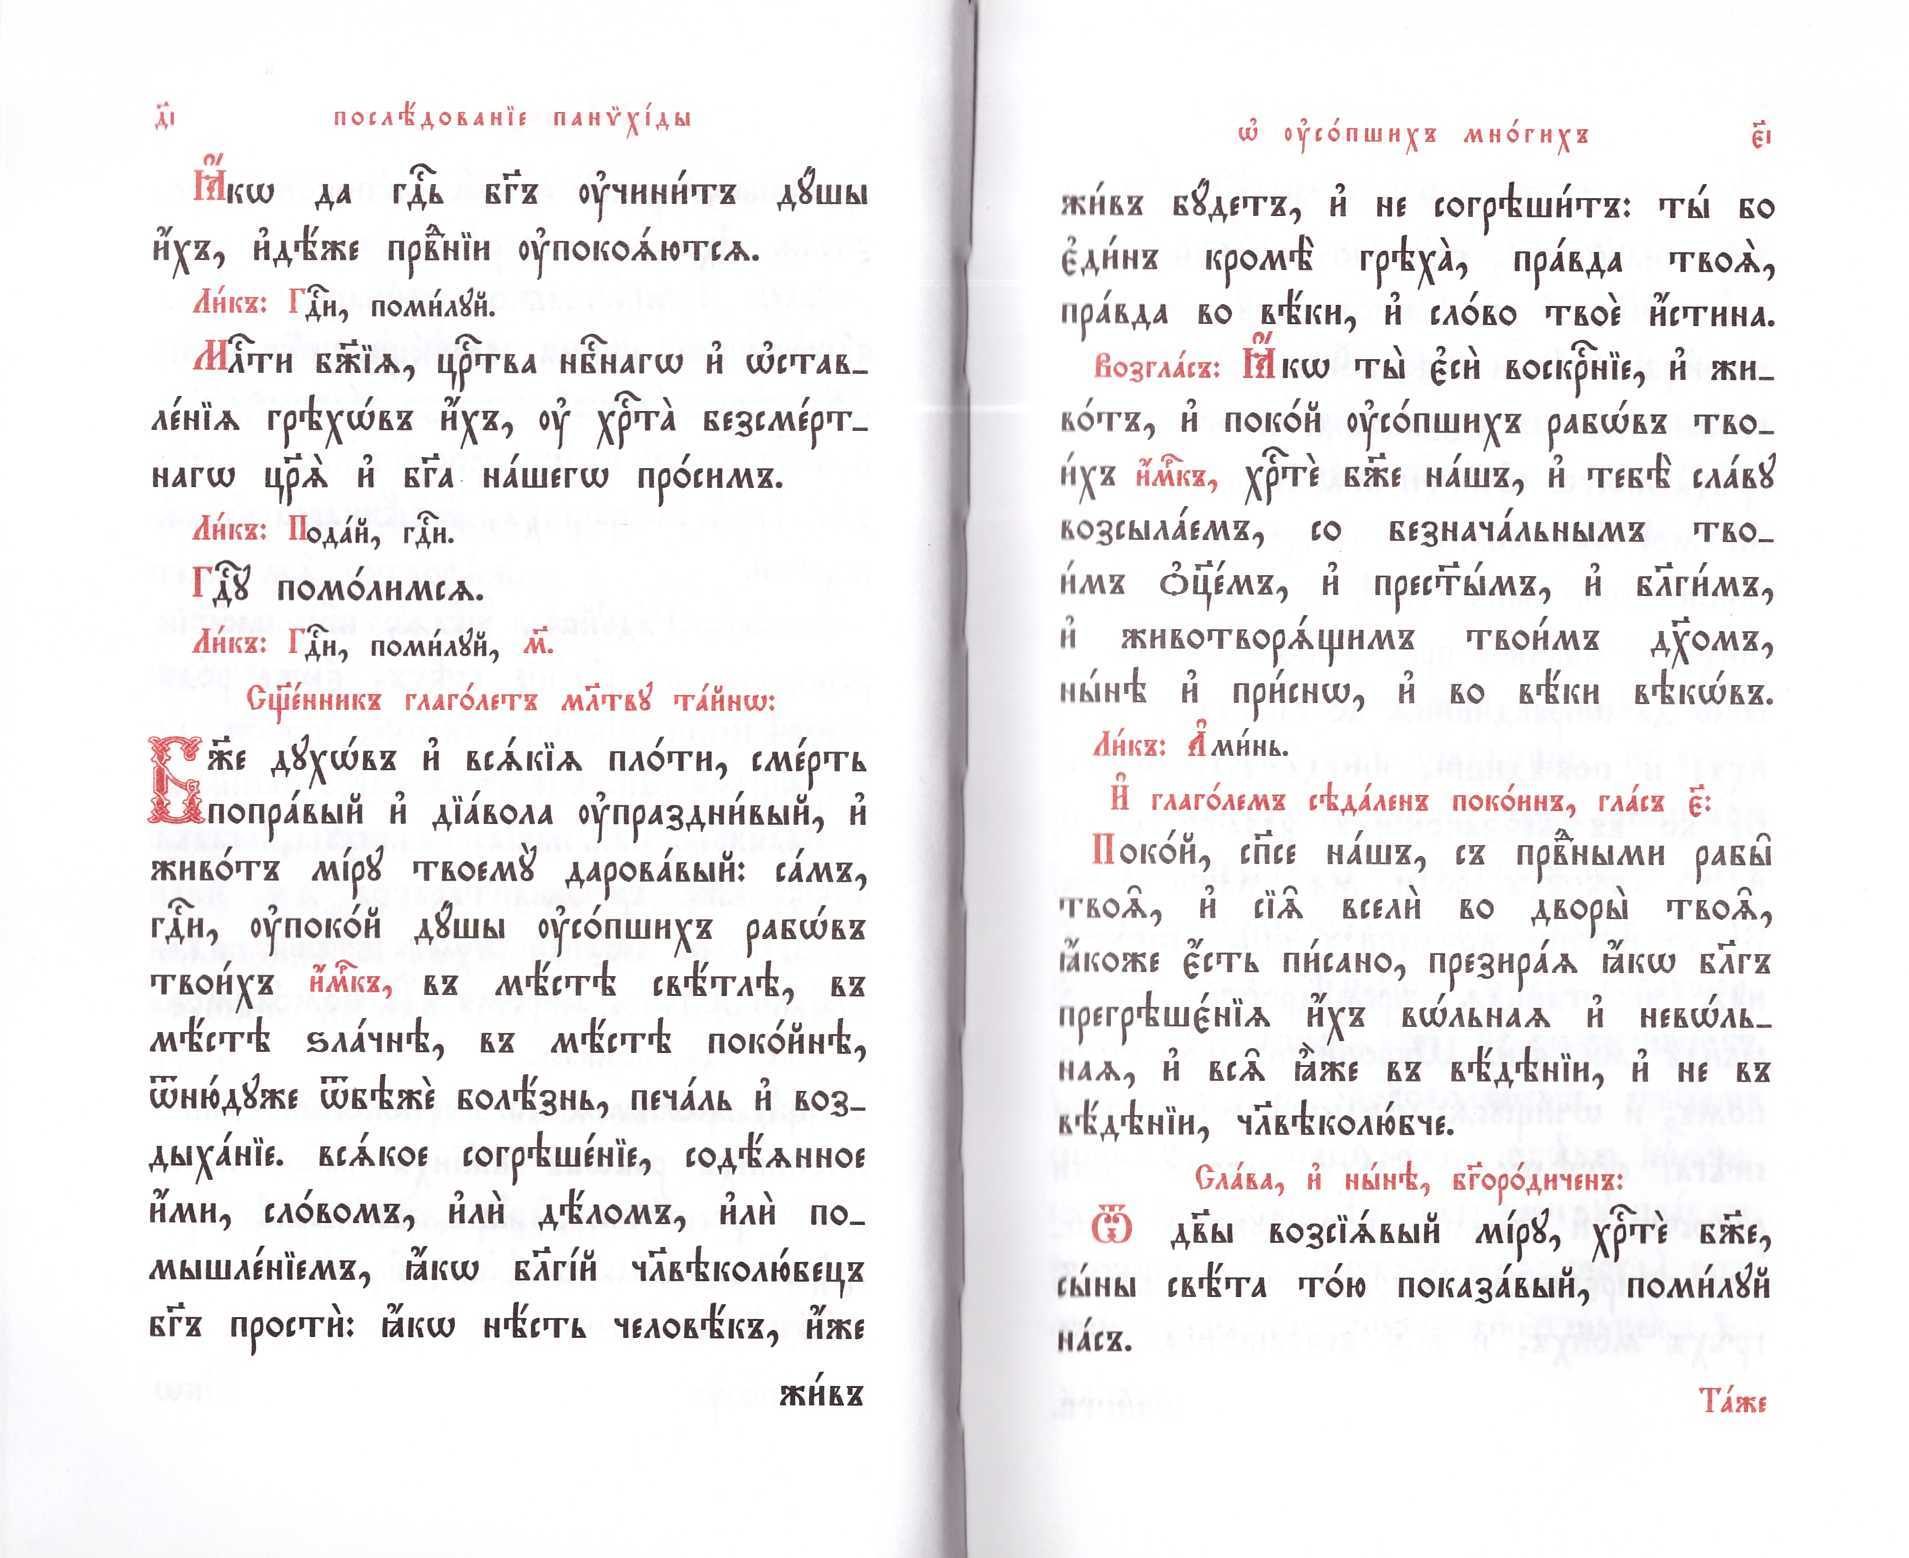 д҃і послѣ́дованїе панѷхі́ды
Ꙗ҆́кѡ да гдⷭ҇ь бг҃ъ ᲂу҆чини́тъ дꙋ́шы
и҆́хъ, и҆дѣ́же првⷣнїи ᲂу҆покоѧ́ютсѧ.
Ли́къ: Гдⷭ҇и, поми́лꙋй.
Млⷭ҇ти бж҃їѧ, црⷭ҇тва нбⷭ҇нагѡ и҆ ѡ҆ставⸯ_
ле́нїѧ грѣхѡ́въ и҆́хъ, ᲂу҆ хрⷭ҇та̀ безсме́рт_
нагѡ цр҃ѧ̀ и҆ бг҃а на́шегѡ про́симъ.
Ли́къ: Пода́й, гдⷭ҇и.
Гдⷭ҇ꙋ помо́лимсѧ.
Ли́къ: Гдⷭ҇и, поми́лꙋй, м҃.
Сщ҃е́нникъ глаго́летъ мл҃твꙋ та́йнѡ:
Бж҃е дꙋхѡ́въ и҆ всѧ́кїѧ пло́ти, сме́рть
попра́вый и҆ дїа́вола ᲂу҆праздни́вый, и҆
живо́тъ мі́рꙋ твоемꙋ̀ дарова́вый: са́мъ,
гдⷭ҇и, ᲂу҆поко́й дꙋ́шы ᲂу҆со́пшихъ рабѡ́въ
твои́хъ и҆м҃къ, въ мѣ́стѣ свѣ́тлѣ, въ
мѣ́стѣ ѕла́чнѣ, въ мѣ́стѣ поко́йнѣ,
ѿню́дꙋже ѿбѣжѐ болѣ́знь, печа́ль и҆ воз_
дыха́нїе. всѧ́кое согрѣше́нїе, содѣ́ѧнное
и҆́ми, сло́вомъ, и҆лѝ дѣ́ломъ, и҆лѝ по_
мышле́нїемъ, ꙗ҆́кѡ бл҃гі́й чл҃вѣколю́бецъ
бг҃ъ простѝ: ꙗ҆́кѡ нѣ́сть человѣ́къ, и҆́же
жи́въ
ѡ҆ ᲂу҆со́пшихъ мно́гихъ є҃і
жи́въ бꙋ́детъ, и҆ не согрѣши́тъ: ты́ бо
є҆ди́нъ кромѣ̀ грѣха̀, пра́вда твоѧ̀,
пра́вда во вѣ́ки, и҆ сло́во твоѐ и҆́стина.
Возгла́съ: Ꙗ҆́кѡ ты̀ є҆сѝ воскрⷭ҇нїе, и҆ жи_
во́тъ, и҆ поко́й ᲂу҆со́пшихъ рабѡ́въ тво_
и́хъ и҆м҃къ, хрⷭ҇тѐ бж҃е на́шъ, и҆ тебѣ̀ сла́вꙋ
возсыла́емъ, со безнача́льнымъ тво_
и́мъ ѻ҆ц҃е́мъ, и҆ прест҃ы́мъ, и҆ бл҃ги́мъ,
и҆ животворѧ́щимъ твои́мъ дх҃омъ,
ны́нѣ и҆ при́снѡ, и҆ во вѣ́ки вѣкѡ́въ.
Ли́къ: А҆ми́нь.
И҆ глаго́лемъ сѣда́ленъ поко́инъ, гла́съ є҃:
Поко́й, сп҃се на́шъ, съ првⷣными рабы̑
твоѧ̑, и҆ сїѧ̑ вселѝ во дворы̀ твоѧ̑,
ꙗ҆́коже є҆́сть пи́сано, презира́ѧ ꙗ҆́кѡ бл҃гъ
прегрѣше́нїѧ и҆́хъ вѡ́льнаѧ и҆ невѡ́ль_
наѧ, и҆ всѧ̑ ꙗ҆̀же въ вѣ́дѣнїи, и҆ не въ
вѣ́дѣнїи, чл҃вѣколю́бче.
Сла́ва, и҆ ны́нѣ, бг҃оро́диченъ:
Ѿ дв҃ы возсїѧ́вый мі́рꙋ, хрⷭ҇тѐ бж҃е,
сы́ны свѣ́та то́ю показа́вый, поми́лꙋй
на́съ.
Та́же